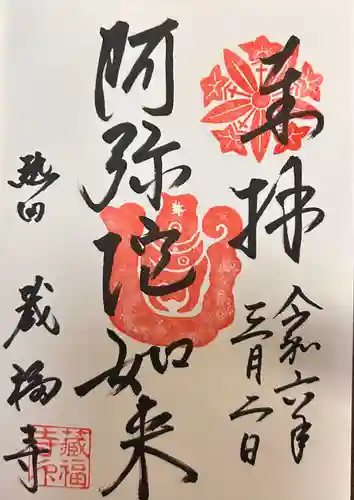 奉拝
令和六年
三月二日
阿弥陀如来
熱田
蔵福寺
蔵福
寺印